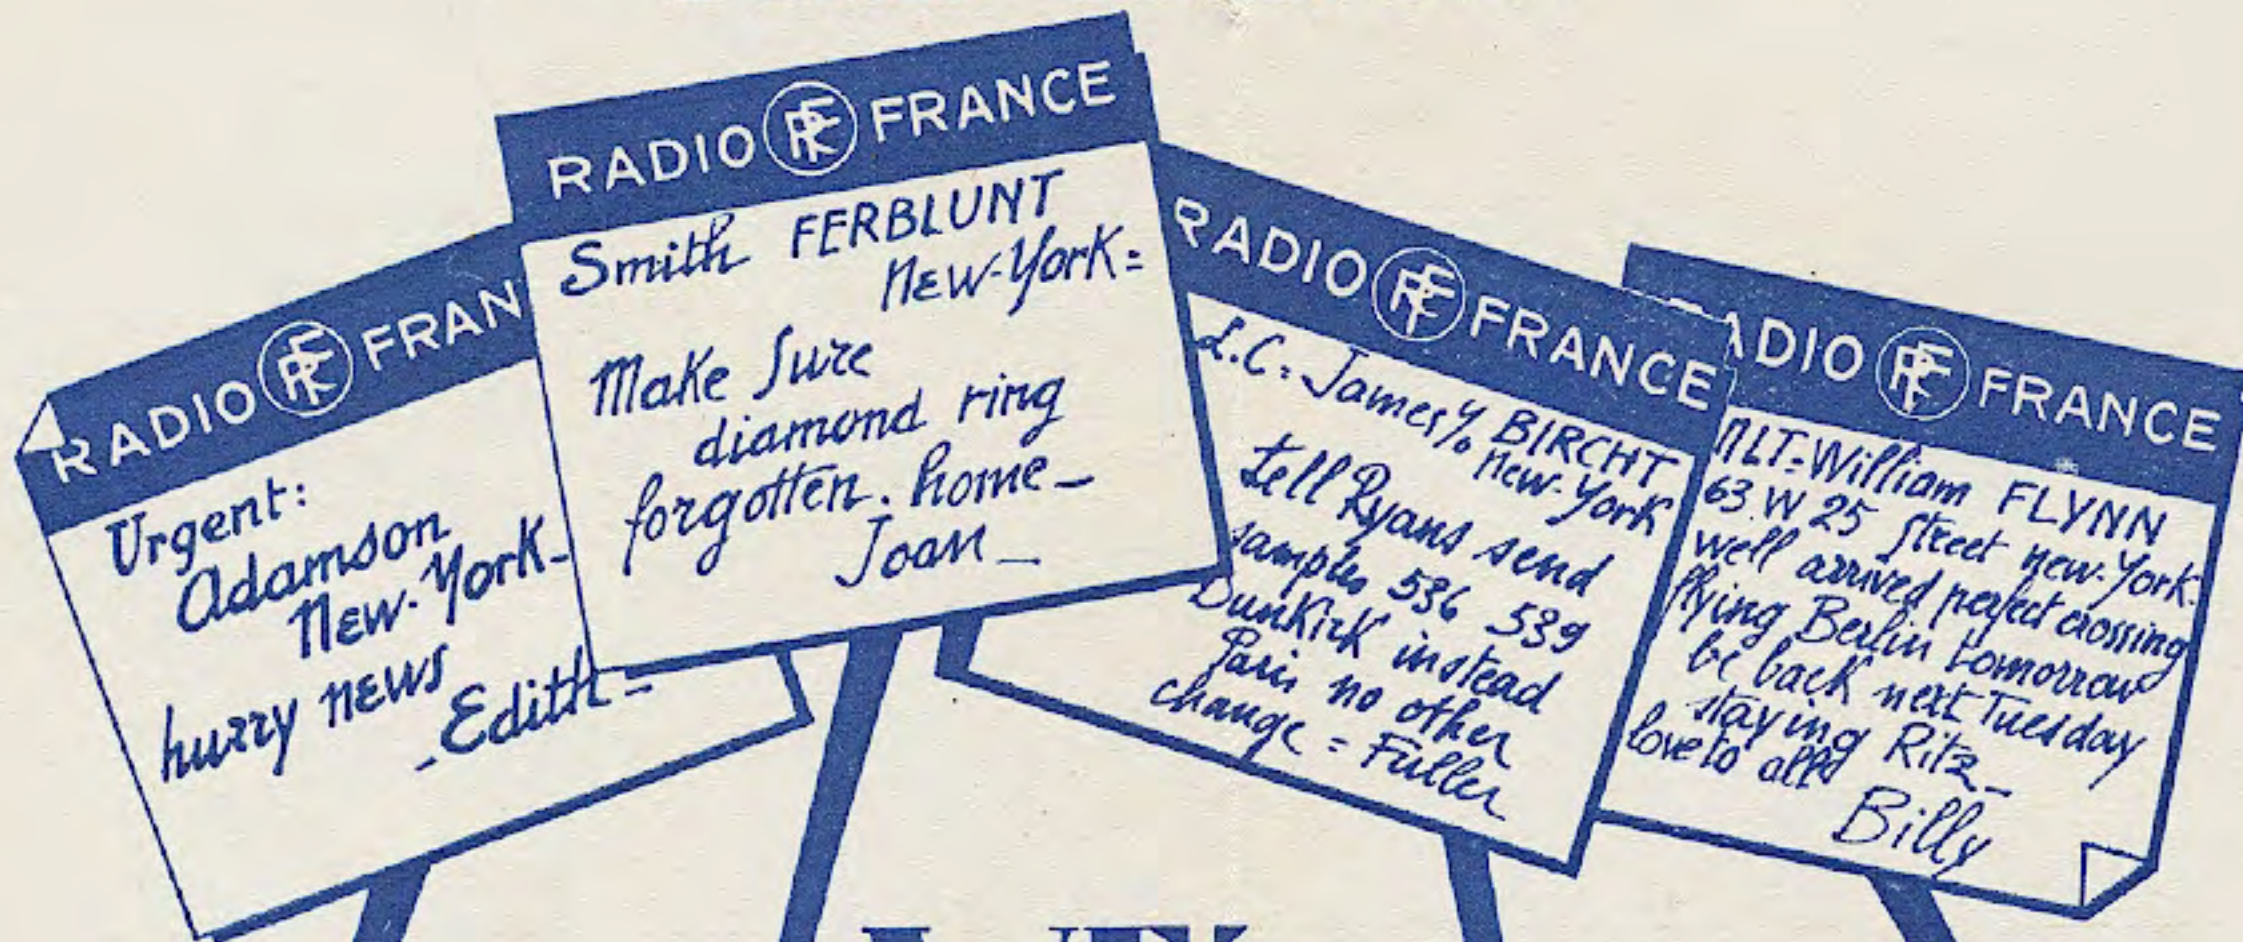 RADIO RF FRAN
Urgent:
Adamson
New-York-
hurry news
-Edith-
RADIO RF FRANCE
Smith FERBLUNT
New-York=
Make Sure
diamond ring
forgotten. home-
Joan-
RADIO RF FRANCE
L.C= James c/o BIRCHT
New-York
tell Ryans send
samples 536 539
Dunkirk instead
Paris no other
change = Fuller
ADIO RF FRANCE
NLT=William FLYNN
63.W 25 Street New-York.
well arrived perfect crossing
flying Berlin tomorrow
be back next Tuesday
staying Ritz-
love to all
Billy